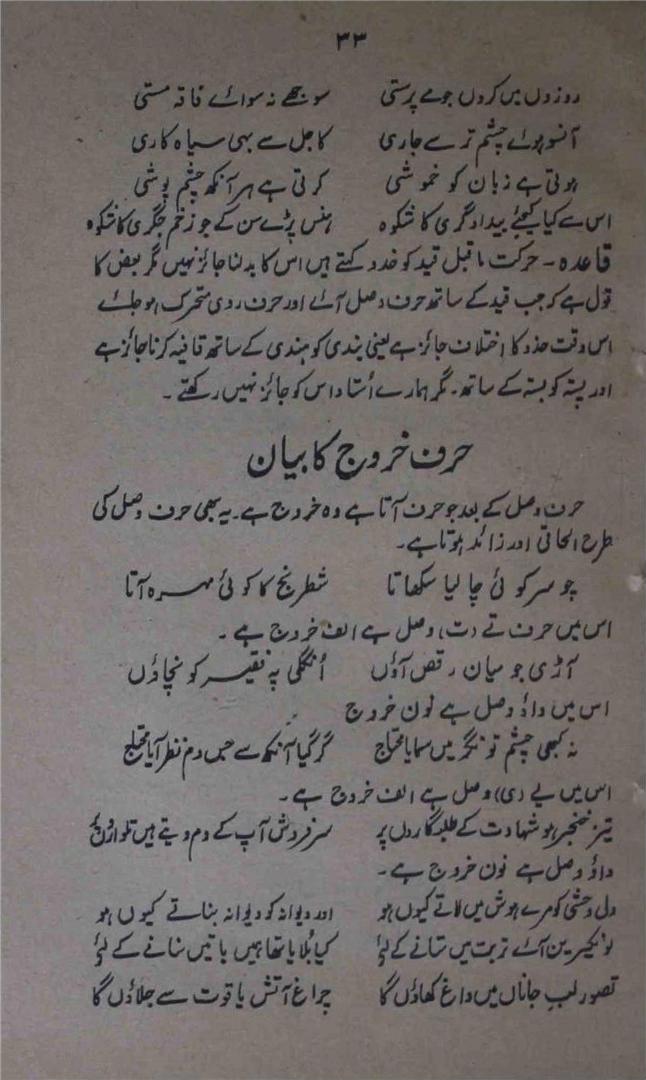 ۳۳
روزوں میں کروں جو مے پرستی سوجھے نہ سوائے فاقہ مستی
آنسو ہوئے چشم تر سے جاری کاجل سے بہی سیاہ کاری
ہوتی ہے زبان کو خموشی کرتی ہے ہر آنکھ چشم پوشی
اس سے کیا کیجئے بیدادگری کا شکوہ ہنس پڑے سن کے جو زخم جگری کا شکوہ
قاعدہ ۔ حرکت ماقبل قید کو خدد کہتے ہیں اس کا بدلنا جائز نہیں مگر بعض کا
قول ہے کہ جب قید کے ساتھ حرف وصل آئے اور حرف روی متحرک ہو جائے
اس وقت حذو کا اختلاف جائز ہے یعنی بندی کو ہندی کے ساتھ قافیہ کرنا جائز ہے
اور پستہ کو بستہ کے ساتھ ۔ مگر ہمارے اُستاد اس کو جائز نہیں رکھتے ۔
حرف خروج کا بیان
حرف وصل کے بعد جو حرف آتا ہے وہ خروج ہے ۔ یہ بھی حرف وصل کی
طرح الحاقی اور زائد ہوتا ہے ۔
چوسر کوئی چالیا سکھاتا شطرنج کا کوئی مہرہ آتا
اس میں حرف تے (ت) وصل ہے الف خروج ہے ۔
آڑی جو میان رقص آؤں اُنگلی پہ نقیسر کو نچاؤں
اس میں واؤ وصل ہے نون خروج
نہ کبھی چشم تونگر میں سمایا محتاج گر گیا آنکھ سے جس دم نظر آیا محتاج
اس میں یے (ی) وصل ہے الف خروج ہے ۔
تیز خنجر ہو شہادت کے طلبگاروں پر سرفروش آپ کے دم دیتے ہیں تلواروں پر
واؤ وصل ہے نون خروج ہے ۔
دل وحشی کو مرے ہوش میں لاتے کیوں ہو اور دیوانہ کو دیوانہ بناتے کیوں ہو
لو نکیرین آئے تربت میں ستانے کے لئے کیا بُلایا تھا ہمیں باتیں سنانے کے لئے
تصور لبِ جاناں میں داغ کھاؤں گا چراغ آتش یاقوت سے جلاؤں گا